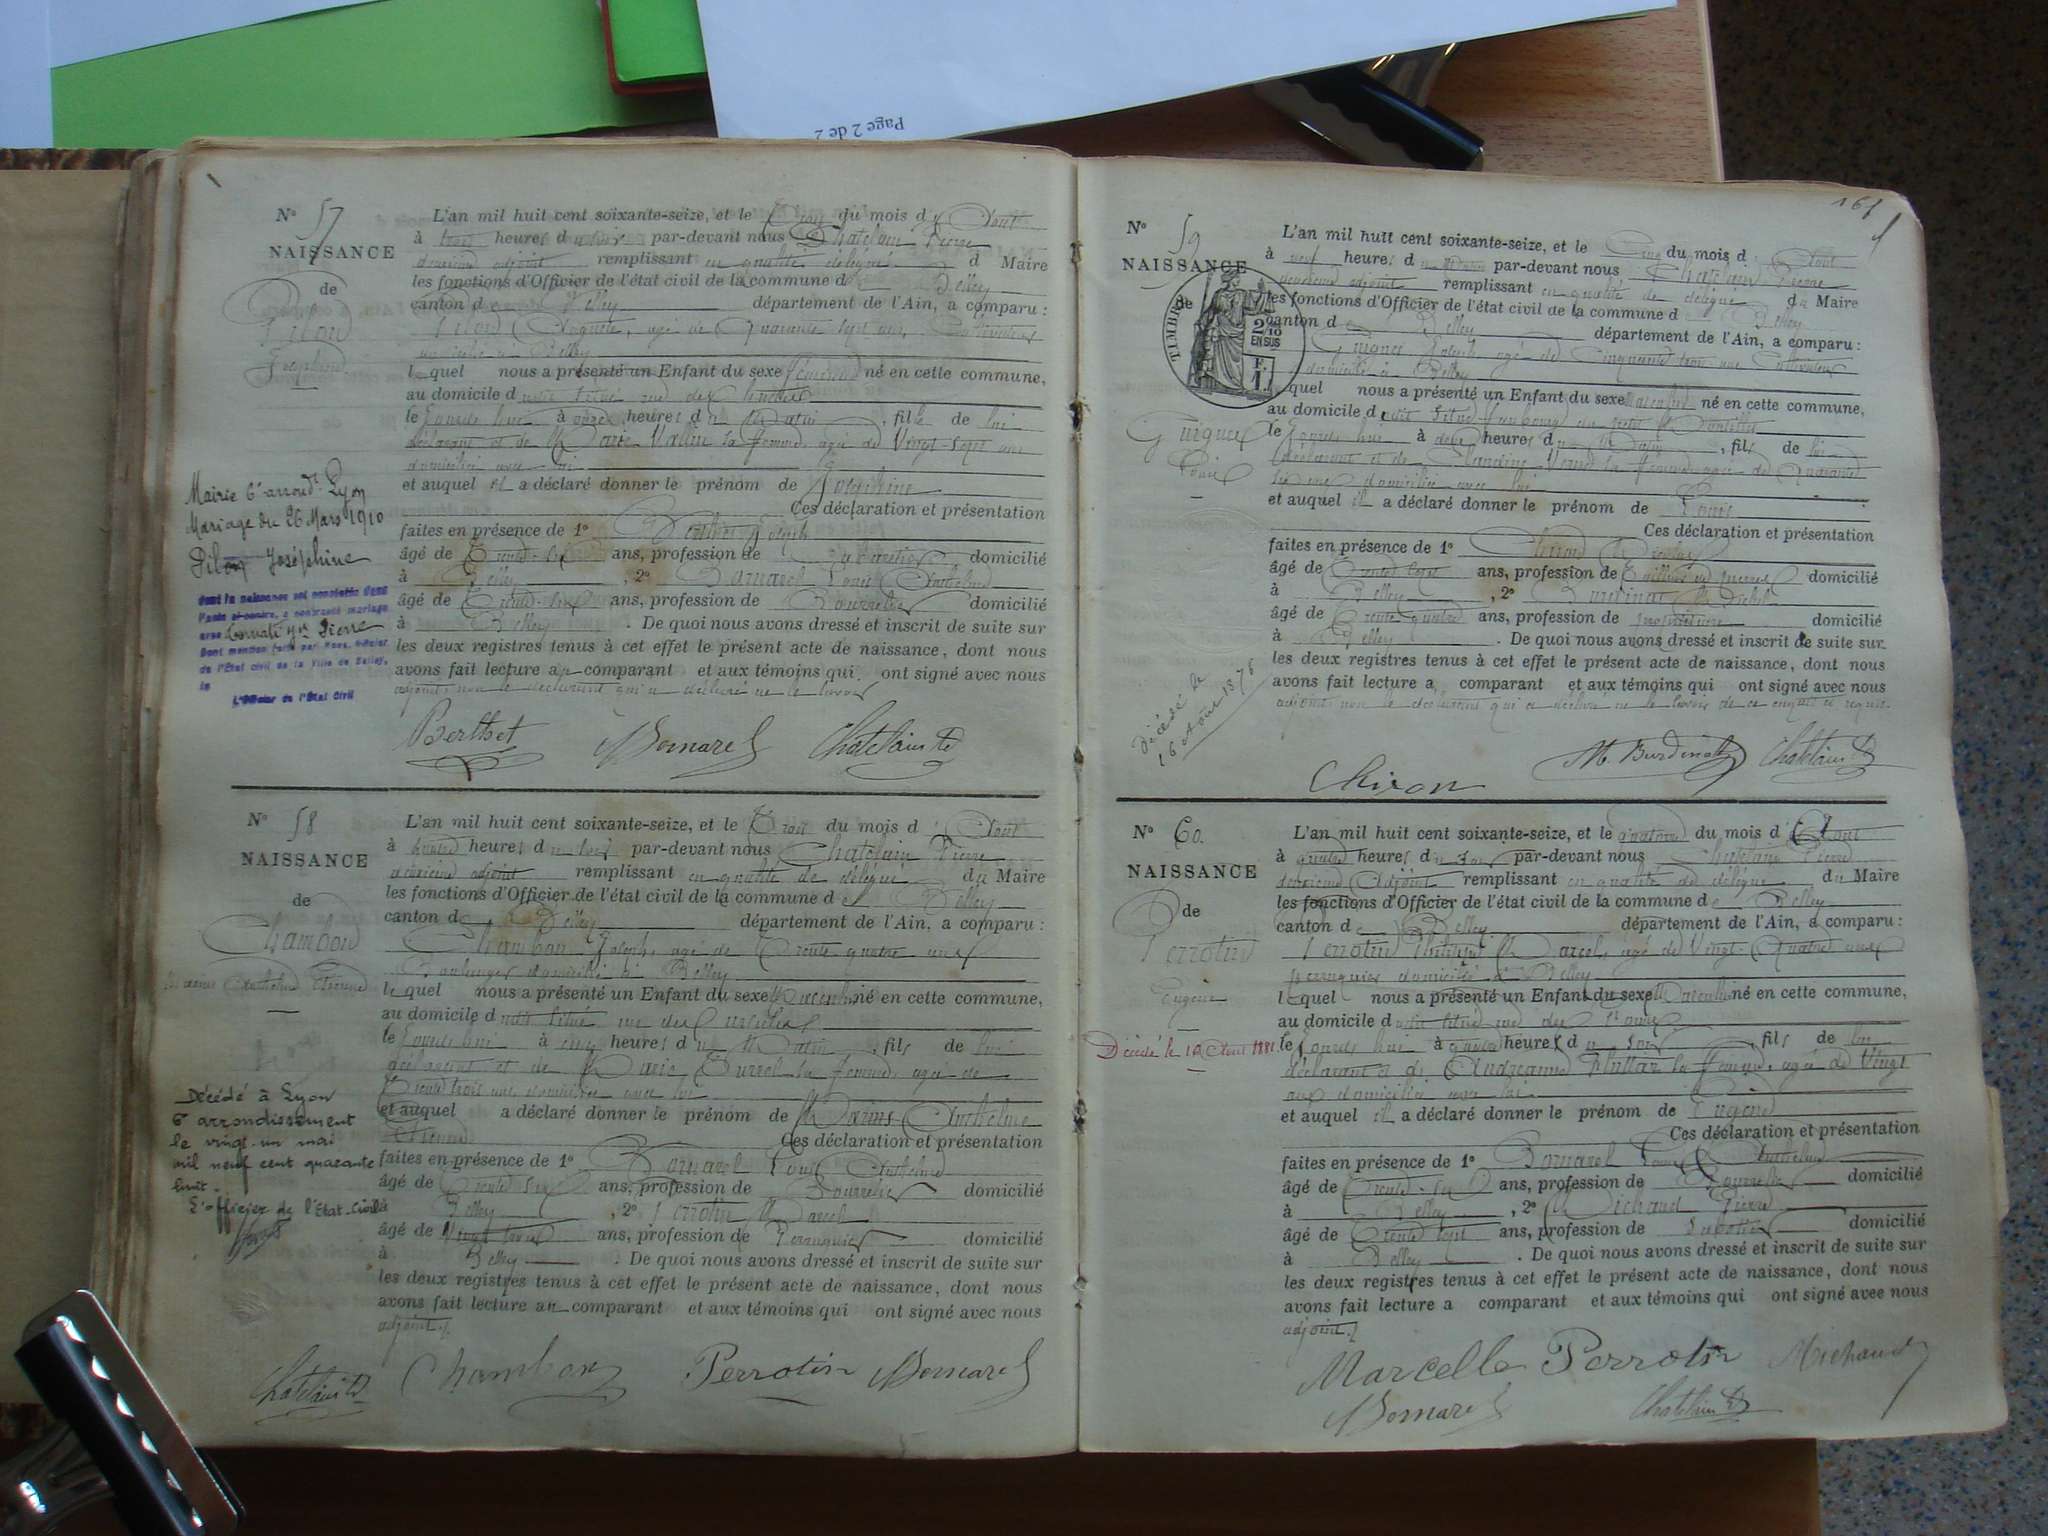 Page 2 de 2
N° 57
NAISSANCE
de
Pilon
Joséphine
L'an mil huit cent soixante-seize, et le trois du mois d'Août
à trois heures du soir par-devant nous Chatelain Pierre
deuxième adjoint remplissant en qualité de délégué d Maire
les fonctions d'Officier de l'état civil de la commune de Belley
canton de Belley département de l'Ain, a comparu :
Pilon agé de Quarante sept ans, Cultivateur
domicilié à Belley
lequel nous a présenté un Enfant du sexe féminin né en cette commune,
au domicile
le jourd'hui à onze heures du Matin, fille de lui
déclarant et de Marie sa femme, agée de Vingt-sept ans
domiciliée avec lui
et auquel il a déclaré donner le prénom de Joséphine
Ces déclaration et présentation
faites en présence de 1° Berthet Joseph
âgé de Trente-six ans, profession de domicilié
à Belley, 2° Bornarel Louis Anthelme
âgé de Trente-six ans, profession de Bourrelier domicilié
à Belley. De quoi nous avons dressé et inscrit de suite sur
les deux registres tenus à cet effet le présent acte de naissance, dont nous
avons fait lecture au comparant et aux témoins qui ont signé avec nous
adjoint, non le déclarant qui a déclaré ne le savoir
Berthet Bornarel Chatelain
Mairie 6e arrondt Lyon
Mariage du 26 Mars 1910
Pilon Joséphine
dont la naissance est constatée dans
l'acte ci-contre, a contracté mariage
avec Pierre
Dont mention faite par Nous, Officier
de l'État civil de la Ville de Belley,
le
L'Officier de l'État Civil
N° 58
NAISSANCE
de
Chambon
Marius Anthelme Etienne
L'an mil huit cent soixante-seize, et le Trois du mois d'Août
à quatre heures du soir par-devant nous Chatelain Pierre
deuxième adjoint remplissant en qualité de délégué du Maire
les fonctions d'Officier de l'état civil de la commune de Belley
canton de Belley département de l'Ain, a comparu :
Chambon Joseph, agé de Trente quatre ans
Boulanger domicilié à Belley
lequel nous a présenté un Enfant du sexe Masculin né en cette commune,
au domicile
le jourd'hui à cinq heures du Matin, fils de lui
déclarant et de Marie Burrel sa femme, agée de
Trente trois ans, domiciliée avec lui
et auquel a déclaré donner le prénom de Marius Anthelme
Etienne Ces déclaration et présentation
faites en présence de 1° Bornarel Louis Anthelme
âgé de Trente six ans, profession de Bourrelier domicilié
à Belley, 2° Perrotin Marcel
âgé de Vingt trois ans, profession de Perruquier domicilié
à Belley. De quoi nous avons dressé et inscrit de suite sur
les deux registres tenus à cet effet le présent acte de naissance, dont nous
avons fait lecture au comparant et aux témoins qui ont signé avec nous
adjoint.
Chatelain Chambon Perrotin Bornarel
Décédé à Lyon
6e arrondissement
le vingt-un mai
mil neuf cent quarante
huit.
L'officier de l'Etat-Civil
161
N° 59
NAISSANCE
de
TIMBRE
2/10
EN SUS
F.
1.
Guigues
Louis
L'an mil huit cent soixante-seize, et le Cinq du mois d'Août
à neuf heures du Matin par-devant nous Chatelain Pierre
deuxième adjoint remplissant en qualité de délégué du Maire
les fonctions d'Officier de l'état civil de la commune de Belley
canton de Belley département de l'Ain, a comparu :
Guigues Joseph agé de Cinquante trois ans Cultivateur
domicilié à Belley
quel nous a présenté un Enfant du sexe Masculin né en cette commune,
au domicile
le jourd'hui à deux heures du Matin, fils de lui
déclarant et de sa femme, agée de Quarante
domiciliée avec lui
et auquel il a déclaré donner le prénom de Louis
Ces déclaration et présentation
faites en présence de 1° Chiron
âgé de Trente sept ans, profession de Tailleur de pierres domicilié
à Belley, 2° Burdinat Michel
âgé de Trente quatre ans, profession de domicilié
à Belley. De quoi nous avons dressé et inscrit de suite sur
les deux registres tenus à cet effet le présent acte de naissance, dont nous
avons fait lecture a comparant et aux témoins qui ont signé avec nous
adjoint, non le déclarant qui a déclaré ne le savoir de ce enquis et requis.
M. Burdinat Chatelain
Chiron
Décédé le
16 Août 1878
N° 60.
NAISSANCE
de
Perrotin
Eugène
Décédé le 10 Août 1881
L'an mil huit cent soixante-seize, et le quatorze du mois d'Août
à quatre heures du soir par-devant nous Chatelain Pierre
deuxième Adjoint remplissant en qualité de délégué du Maire
les fonctions d'Officier de l'état civil de la commune de Belley
canton de Belley département de l'Ain, a comparu :
Perrotin Marcel, agé de Vingt-Quatre ans
perruquier domicilié à Belley
lequel nous a présenté un Enfant du sexe Masculin né en cette commune,
au domicile
le jourd'hui à quatre heures du soir, fils de lui
déclarant et de sa femme, agée de Vingt
ans domiciliée avec lui
et auquel il a déclaré donner le prénom de Eugène
Ces déclaration et présentation
faites en présence de 1° Bornarel Louis Anthelme
âgé de Trente-six ans, profession de Bourrelier domicilié
à Belley, 2° Michaud Pierre
âgé de Trente sept ans, profession de Sabotier domicilié
à Belley. De quoi nous avons dressé et inscrit de suite sur
les deux registres tenus à cet effet le présent acte de naissance, dont nous
avons fait lecture a comparant et aux témoins qui ont signé avec nous
adjoint.
Marcelle Perrotin Michaud
Bornarel Chatelain